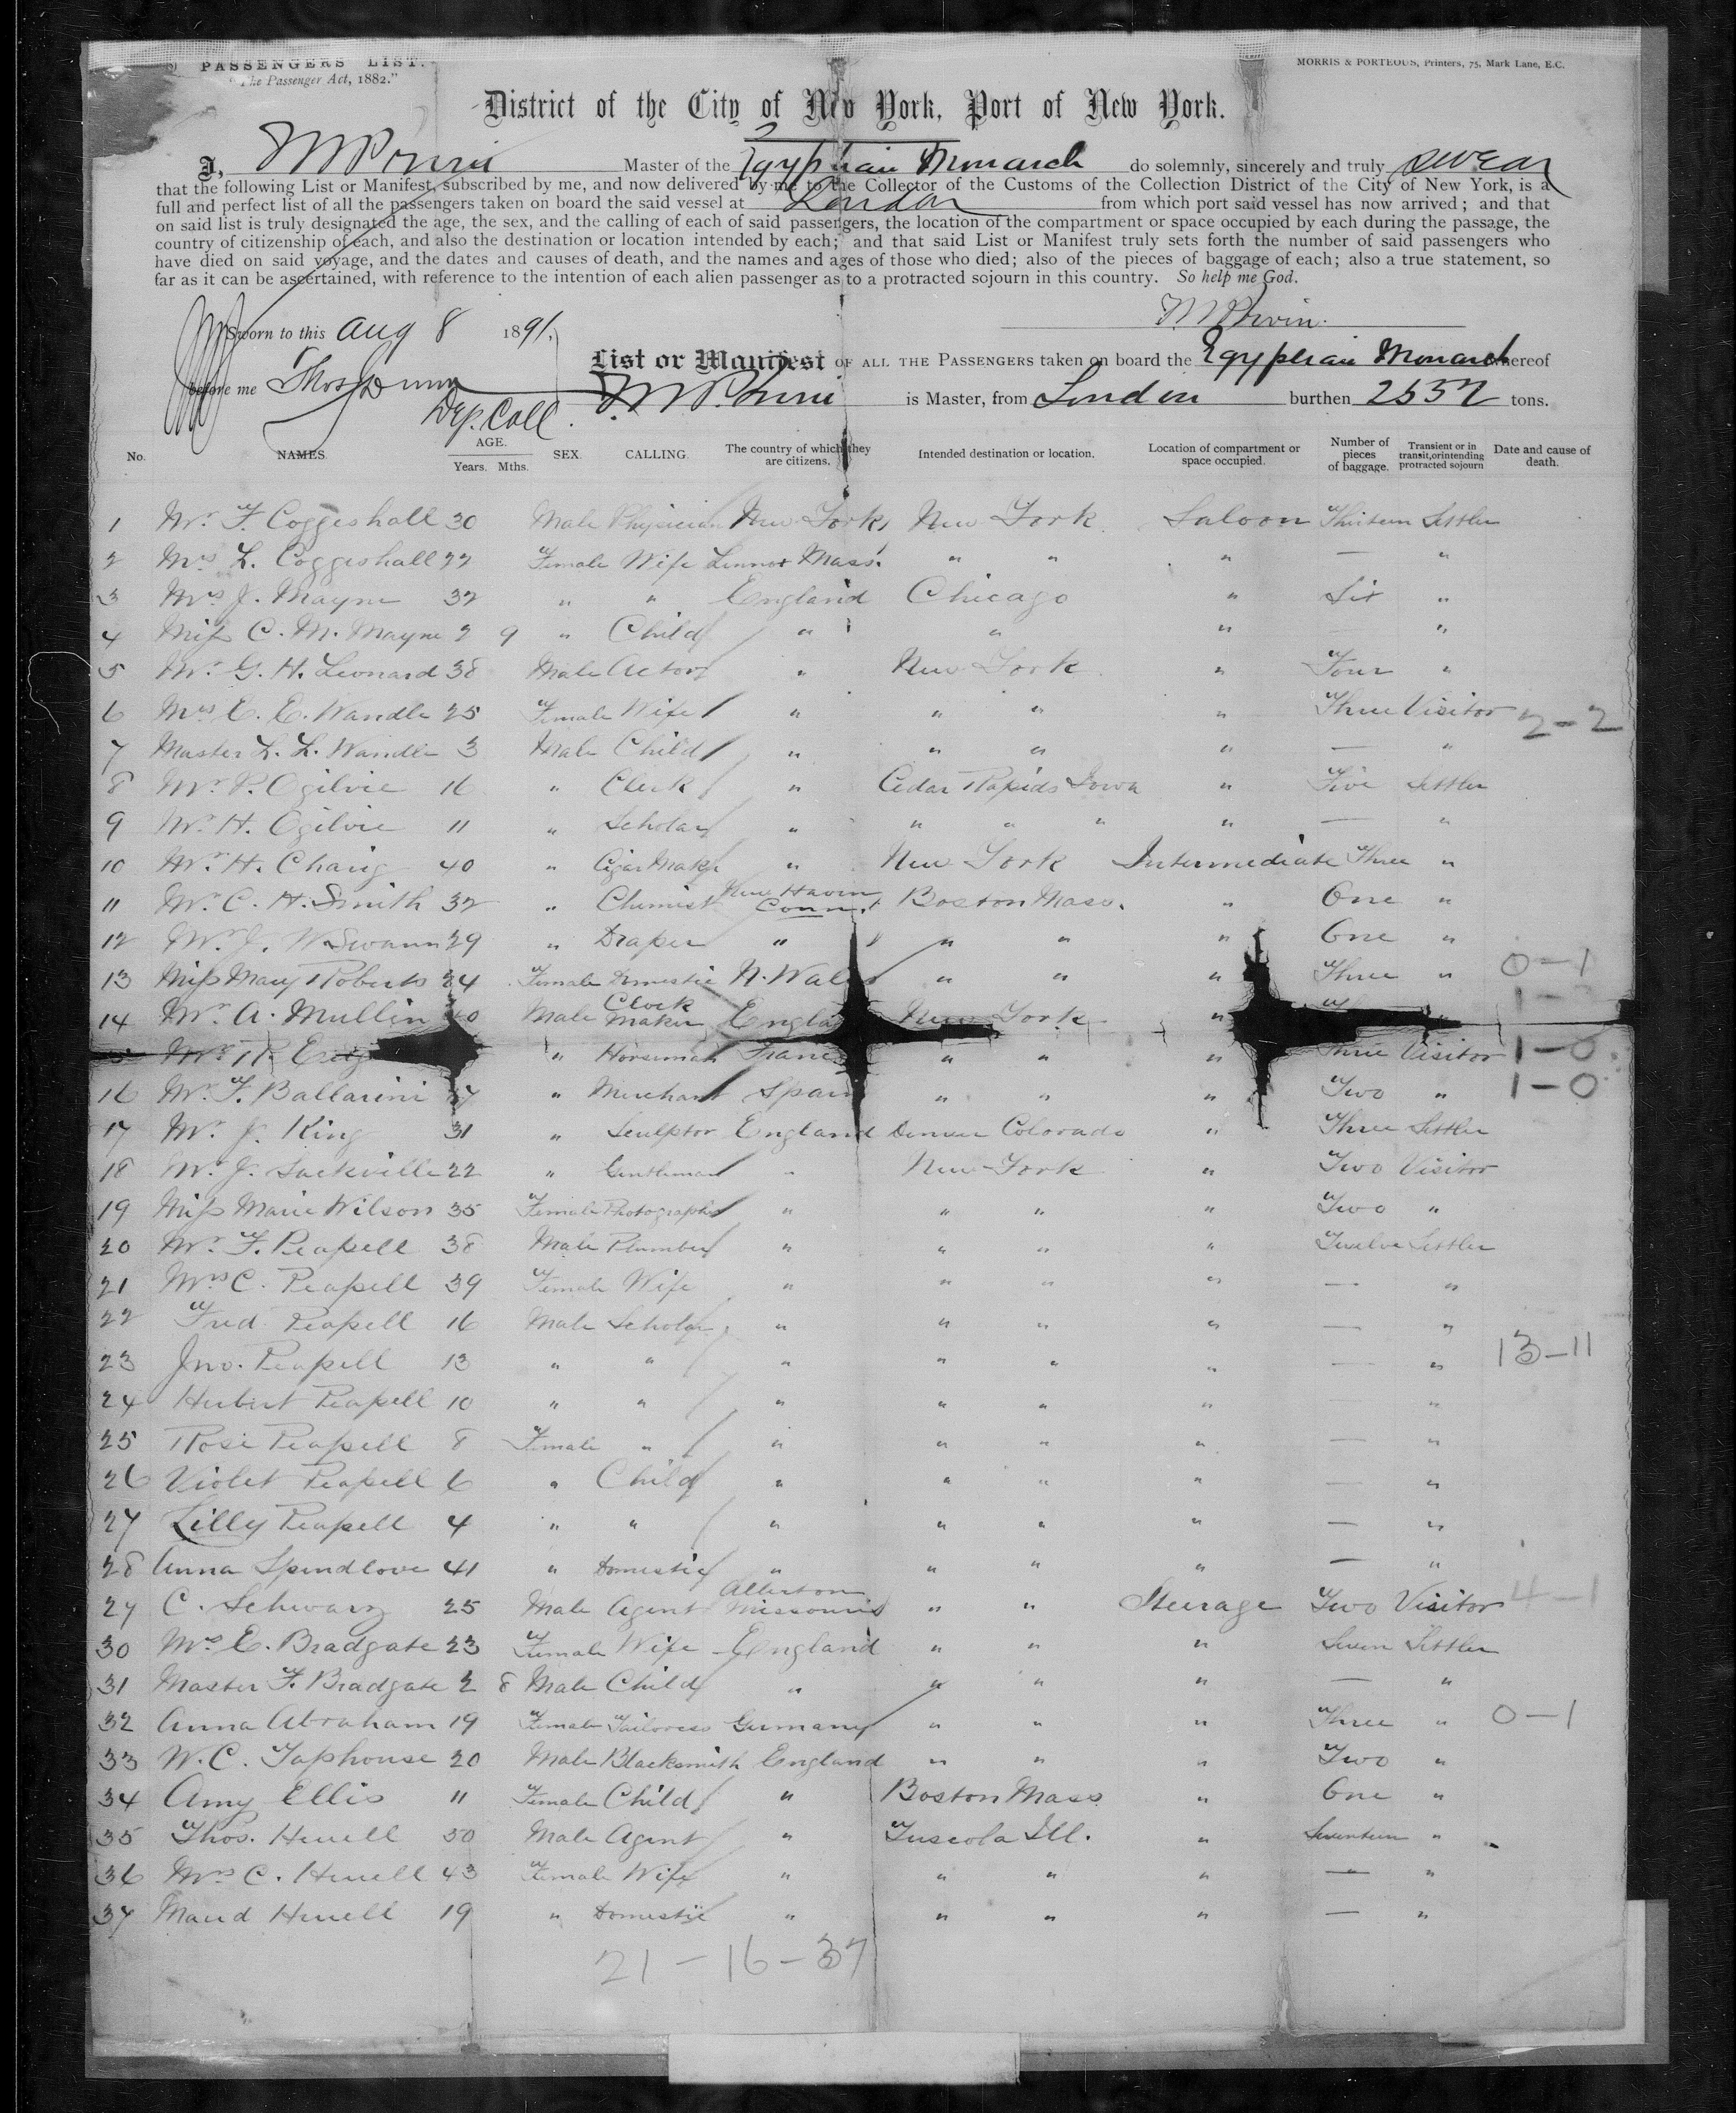 PASSENGERS LIST.
"The Passenger Act, 1882."
MORRIS & PORTEOUS, Printers, 75, Mark Lane, E.C.
District of the City of New York, Port of New York.
I, Master of the Egyptian Monarch do solemnly, sincerely and truly swear
that the following List or Manifest, subscribed by me, and now delivered by me to the Collector of the Customs of the Collection District of the City of New York, is a
full and perfect list of all the passengers taken on board the said vessel at London from which port said vessel has now arrived; and that
on said list is truly designated the age, the sex, and the calling of each of said passengers, the location of the compartment or space occupied by each during the passage, the
country of citizenship of each, and also the destination or location intended by each; and that said List or Manifest truly sets forth the number of said passengers who
have died on said voyage, and the dates and causes of death, and the names and ages of those who died; also of the pieces of baggage of each; also a true statement, so
far as it can be ascertained, with reference to the intention of each alien passenger as to a protracted sojourn in this country. So help me God.
Sworn to this Aug 8 1891.
List or Manifest OF ALL THE PASSENGERS taken on board the Egyptian Monarch whereof
before me Thos Dunn
Dep. Coll. is Master, from London burthen 2537 tons.
No. NAMES. AGE. Years. Mths. SEX. CALLING. The country of which they are citizens. Intended destination or location. Location of compartment or space occupied. Number of pieces of baggage. Transient or in transit, or intending protracted sojourn Date and cause of death.
1 Mr. F. Coggeshall 30 Male Physician New York New York Saloon Thirteen Settler
2 Mrs L. Coggeshall 22 Female Wife Lennox Mass. " " " — "
3 Mrs J. Mayne 32 " " England Chicago " Six "
4 Miss C. M. Mayne 2 9 " Child " " " — "
5 Mr. G. H. Leonard 38 Male Actor " New York " Four "
6 Mrs E. E. Wandle 25 Female Wife " " " " Three Visitor 2-2
7 Master L. L. Wandle 3 Male Child " " " " — "
8 Mr. P. Ogilvie 16 " Clerk " Cedar Rapids Iowa " Five Settler
9 Mr. H. Ogilvie 11 " Scholar " " " " " — "
10 Mr. H. Chaig 40 " Cigar Maker " New York Intermediate Three "
11 Mr. C. H. Smith 32 " Chemist New Haven Conn. Boston Mass. " One "
12 Mr. J. W. Swann 29 " Draper " " " " One "
13 Miss Mary Roberts 24 Female Domestic N. Wales " " " Three " 0-1
14 Mr. A. Mullin Male Clock Maker England New York "
Mr. R. " Horseman France " " " Three Visitor 1-0
16 Mr. F. Ballarini " Merchant Spain " " " Two " 1-0
17 Mr. J. King 31 " Sculptor England Denver Colorado " Three Settler
18 Mr. J. Sackville 22 " Gentleman " New York " Two Visitor
19 Miss Marie Wilson 35 Female Photographer " " " " Two "
20 Mr. F. Peapell 38 Male Plumber " " " " Twelve Settler
21 Mrs C. Peapell 39 Female Wife " " " " — "
22 Fred Peapell 16 Male Scholar " " " " — "
23 Jno. Peapell 13 " " " " " " — " 13-11
24 Herbert Peapell 10 " " " " " " — "
25 Rose Peapell 8 Female " " " " " — "
26 Violet Peapell 6 " Child " " " " — "
27 Lilly Peapell 4 " " " " " " — "
28 Anna Spendlove 41 " Domestic " " " " — "
29 C. Schwarz 25 Male Agent Missouri " " Steerage Two Visitor 4-1
30 Mrs E. Bradgate 23 Female Wife England " " " Seven Settler
31 Master F. Bradgate 2 8 Male Child " " " " — "
32 Anna Abraham 19 Female Tailoress Germany " " " Three " 0-1
33 W. C. Taphouse 20 Male Blacksmith England " " " Two "
34 Amy Ellis 11 Female Child " Boston Mass " One "
35 Thos. Hewell 50 Male Agent " Tuscola Ill. " Seventeen "
36 Mrs C. Hewell 43 Female Wife " " " " — "
37 Maud Hewell 19 " Domestic " " " " — "
21-16-37